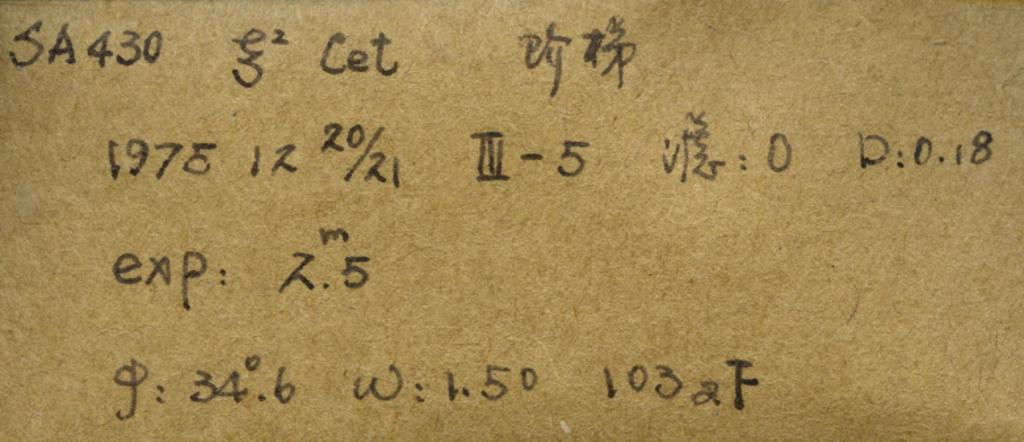 SA430 ξ² Cet 阶梯
1975 12 20/21 Ⅲ-5 滤:0 D:0.18
exp: 2.5ᵐ
φ: 34°.6 W: 1.50 103a下